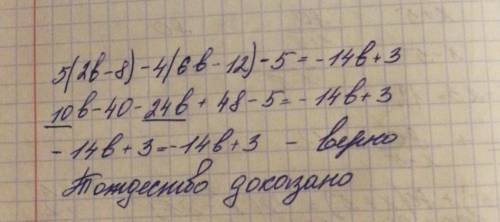 5(2в-8)-4(6в-12)-5=-14в+3
10в-40-24в+48-5=-14в+3
-14в+3=-14в+3 - верно
Тождество доказано